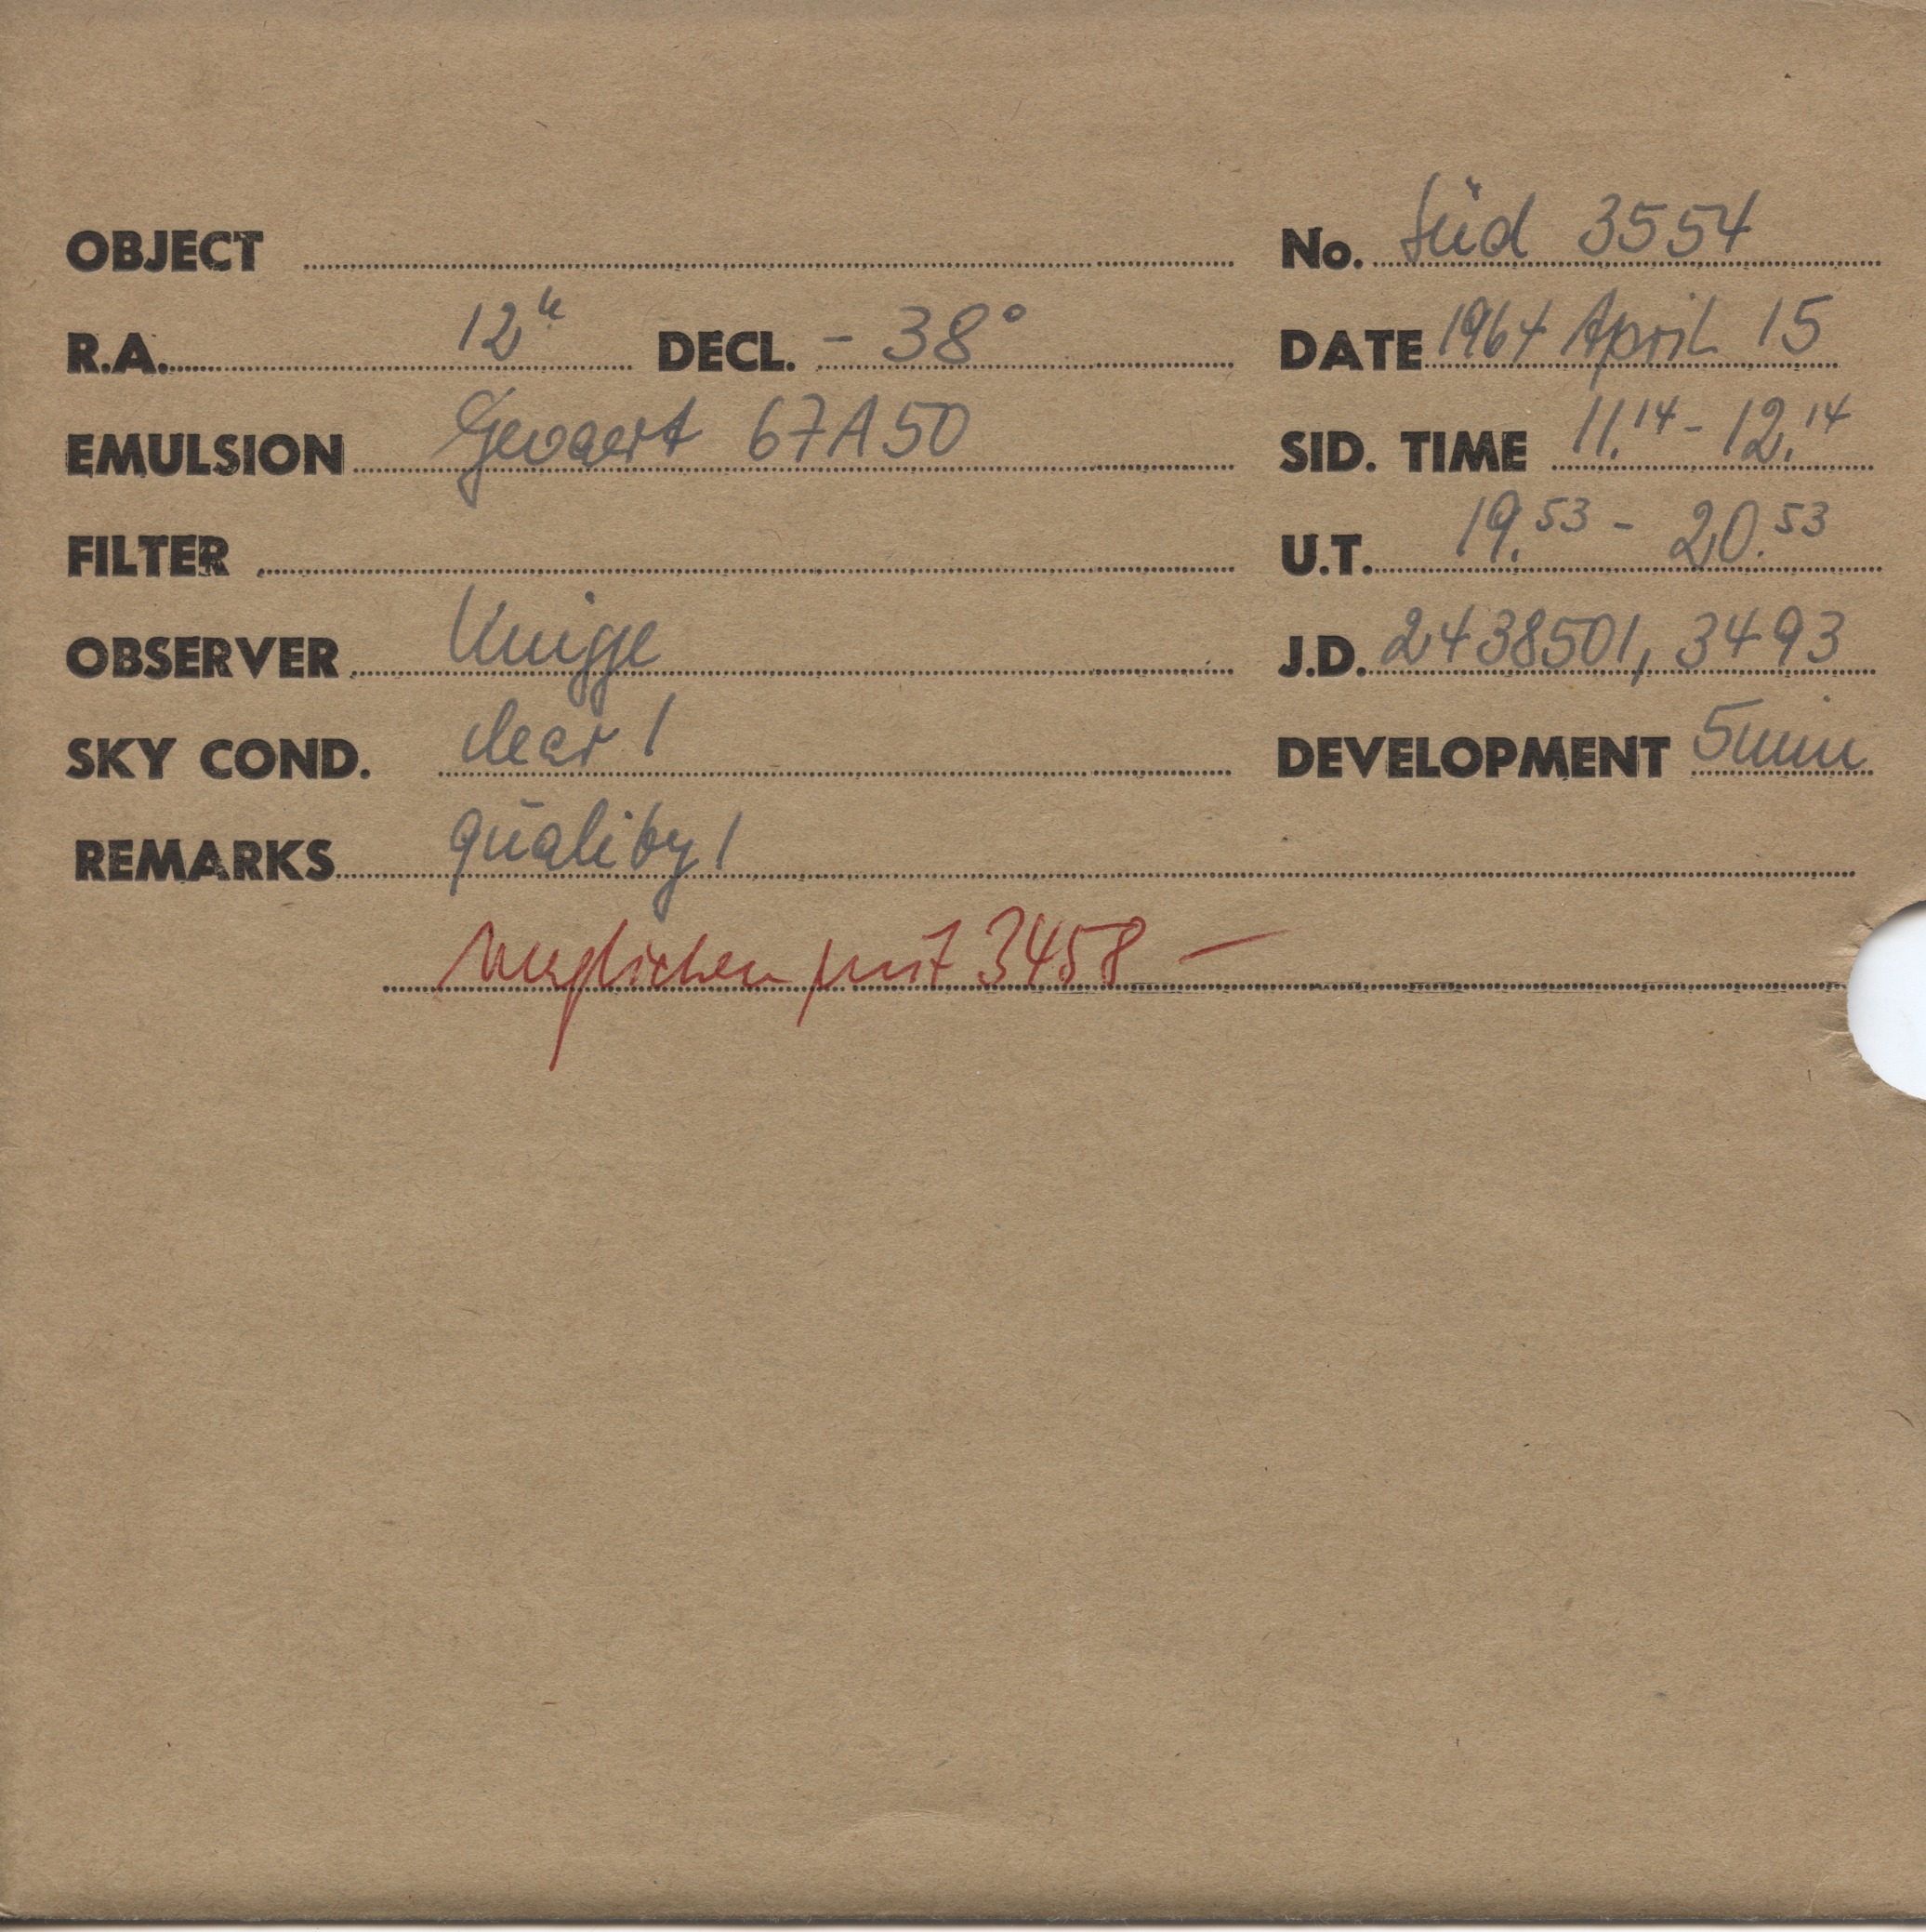 OBJECT No. Süd 3554
R.A. 12h DECL. - 38° DATE 1964 April 15
EMULSION Gevaert 67A50 SID. TIME 11.14 - 12.14
FILTER U.T. 19.53 - 20.53
OBSERVER Knigge J.D. 2438501,3493
SKY COND. clear 1 DEVELOPMENT 5min
REMARKS quality 1
verglichen mit 3458 —